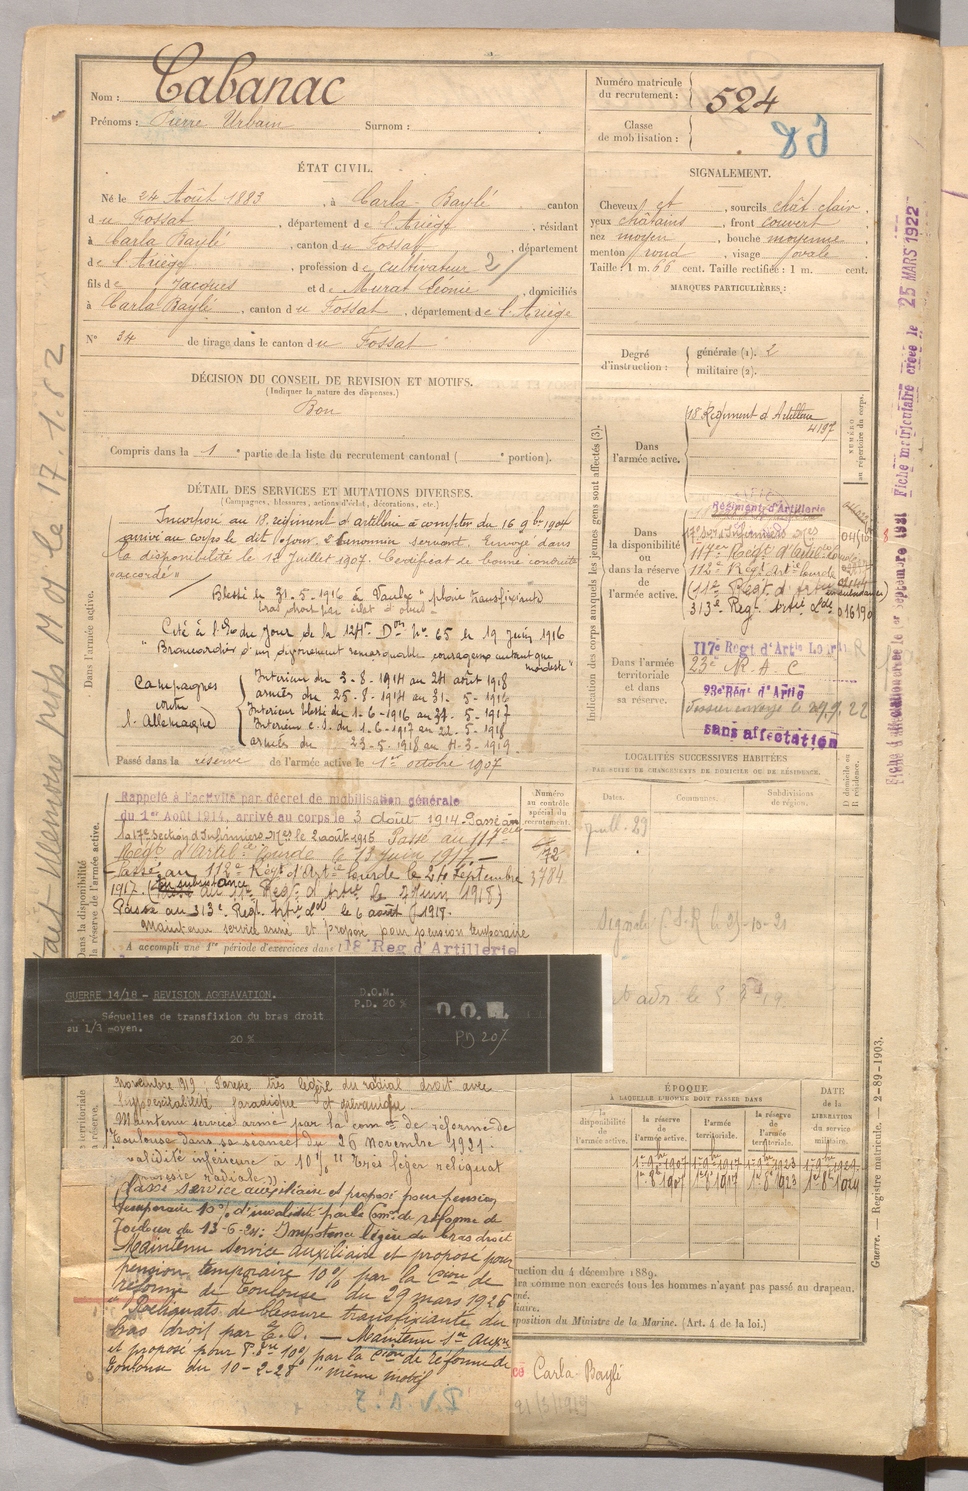 Nom : Cabanac
Prénoms : Pierre Urbain Surnom :
Numéro matricule du recrutement : 524
Classe de mobilisation :
ÉTAT CIVIL.
Né le 24 Août 1883, à Carla-Baylé canton
du Fossat, département de l'Ariège, résidant
à Carla Baylé, canton du Fossat, département
de l'Ariège, profession de cultivateur 2/
fils de Jacques et de Murat Léonie, domiciliés
à Carla Baylé, canton du Fossat, département de l'Ariège
N° 34 de tirage dans le canton du Fossat
SIGNALEMENT.
Cheveux, sourcils chât clair,
yeux châtains, front couvert
nez moyen, bouche moyenne
menton rond, visage ovale
Taille : 1 m. 66 cent. Taille rectifiée : 1 m. cent.
MARQUES PARTICULIÈRES :
Degré d'instruction : générale (1). 2
militaire (2).
DÉCISION DU CONSEIL DE REVISION ET MOTIFS.
(Indiquer la nature des dispenses.)
Bon
Compris dans la 1e partie de la liste du recrutement cantonal ( e portion).
DÉTAIL DES SERVICES ET MUTATIONS DIVERSES.
(Campagnes, blessures, actions d'éclat, décorations, etc.)
Dans l'armée active.
Incorporé au 18e régiment d'artillerie à compter du 16 9bre 1904
arrivé au corps le dit jour, 2e canonnier servant. Envoyé dans
la disponibilité le 12 Juillet 1907. Certificat de bonne conduite
"accordé"
Blessé le 31-5-1916 à Vaulx "plaie transfixiante
bras droit par éclat d'obus"
Cité à l'O. du jour de la 124e Don No 65 le 19 juin 1916
"Brancardier d'un dévouement remarquable courageux autant que
modeste"
Campagnes contre l'Allemagne
Intérieur du 3-8-1914 au 24 août 1918
armées du 25-8-1914 au 31-5-1916
Intérieur blessé du 1-6-1916 au 31-5-1917
Intérieur c.s. du 1-6-1917 au 22-5-1918
armées du 23-5-1918 au 4-3-1919
Passé dans la réserve de l'armée active le 1er octobre 1907
Indication des corps auxquels les jeunes gens sont affectés (3).
NUMÉRO au répertoire du corps.
Dans l'armée active.
18 Régiment d'Artillerie
4197
Dans la disponibilité ou dans la réserve de l'armée active.
Régiment d'Artillerie
117e Régt d'Artillerie Lourde
112e Régt Artie Lourde
(112 Régt d'Artie en subsistance)
313e Régt Artie Lde
Dans l'armée territoriale et dans sa réserve.
117e Régt d'Artie Lourde
23e R A C
23e Régt d'Artie
Dossier envoyé le 29.9.22
sans affectation
LOCALITÉS SUCCESSIVES HABITÉES
PAR SUITE DE CHANGEMENTS DE DOMICILE OU DE RÉSIDENCE.
Dates. Communes. Subdivisions de région. D domicile ou R résidence.
Dans la disponibilité
la réserve de l'armée active.
Numéro au contrôle spécial du recrutement.
72
3784
Rappelé à l'activité par décret de mobilisation générale
du 1er Août 1914, arrivé au corps le 3 août 1914. Passé à
la 17e Section d'Infirmiers Mres le 2 août 1915 Passé au 117ème
Régt d'Artillie Lourde le 13 juin 1917
Passé au 112e Régt d'Artie Lourde le 24 Septembre
1917. (en subsistance au Régt d'Artie le 2 Juin 1918)
Passé au 313e Régt Artie Ld le 6 août 1918.
Maintenu service armé et proposé pour pension temporaire
A accompli une 1re période d'exercices dans 18e Reg d'Artillerie
GUERRE 14/18 - REVISION AGGRAVATION.
Séquelles de transfixion du bras droit
au 1/3 moyen.
20 %
D.O.M.
P.D. 20 %
D.O.M.
PD 20%
novembre 919, Parésie très légère du radial droit avec
hypoexcitabilité faradique et galvanique.
Maintenu service armé par la comon de réforme de
Toulouse dans sa séance du 26 Novembre 1921.
validité inférieure à 10% "Très léger reliquat
parésie radiale"
Passé service auxiliaire et proposé pour pension
temporaire 10% d'invalidité par la Comon de réforme de
Toulouse du 13-6-24: Impotence légère du bras droit
Maintenu service auxiliaire et proposé pour
pension temporaire 10% par la Cion de
réforme de Toulouse du 29 mars 1926
"Reliquats de blessure transfixiante du
bras droit par E.O. — Maintenu Sce Auxre
et proposé pour P. 10% par la Cion de réforme de
Toulouse du 10-2-28 "même motif"
territoriale
réserve.
ÉPOQUE
À LAQUELLE L'HOMME DOIT PASSER DANS
la disponibilité de l'armée active. la réserve de l'armée active. l'armée territoriale. la réserve de l'armée territoriale. DATE de la LIBÉRATION du service militaire.
1er 9bre 1907 1er 9bre 1917 1er 9bre 1923 1er 9bre 1929
1er 8bre 1907 1er 8bre 1917 1er 8bre 1923 1er 8bre 1929
ruction du 4 décembre 1889.
dra comme non exercés tous les hommes n'ayant pas passé au drapeau.
né.
iliaire.
sposition du Ministre de la Marine. (Art. 4 de la loi.)
Carla-Baylé
Guerre. — Registre matricule. — 2-89-1903.
Fiche matriculaire créée le 25 MARS 1922
le 17.1.62